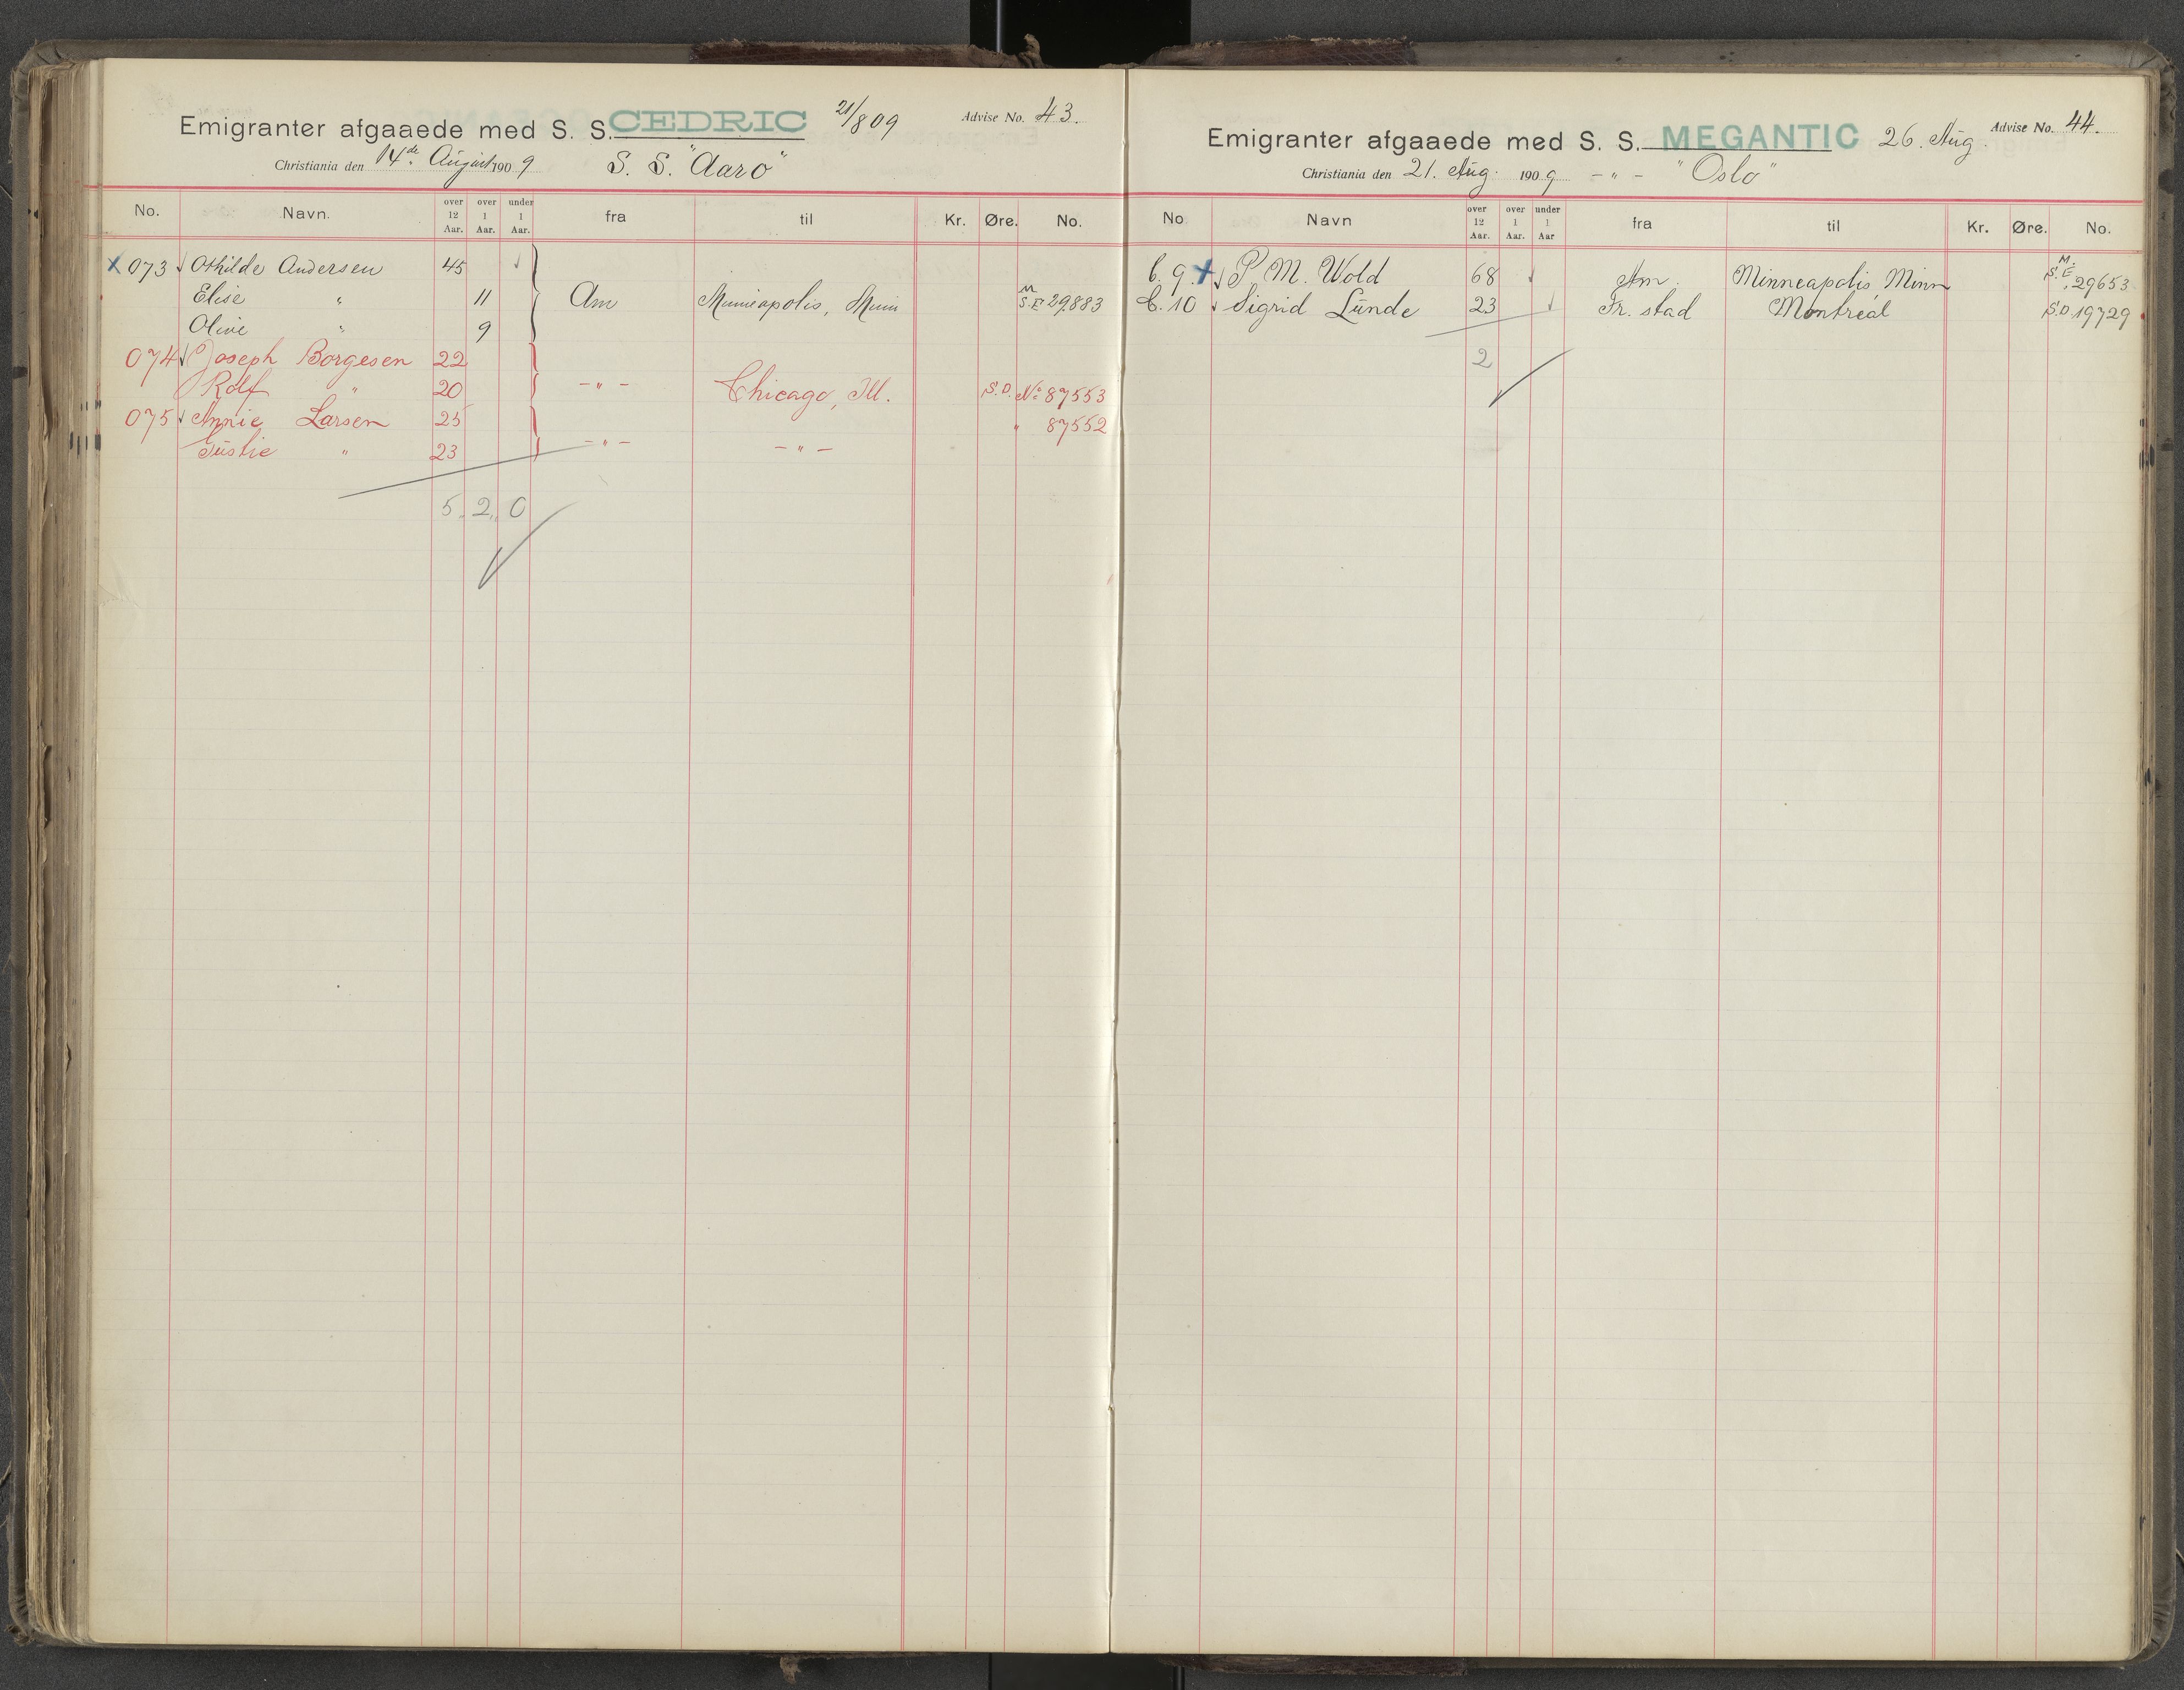 Emigranter afgaaede med S. S. CEDRIC 21/8 09 Advise No. 43.
Christiania den 14de August 1909 S. S. "Aaro"
No. Navn. over 12 Aar. over 1 Aar. under 1 Aar. fra til Kr. Øre. No.
X 073 Othilde Andersen 45
Elise " 11 Am Minneapolis, Minn M S.E. 29883
Olive " 9
074 Joseph Borgesen 22
Rolf " 20 - " - Chicago, Ill. S.D. No 87553
075 Annie Larsen 25 " 87552
" 23 - " - - " -
5 2 0
Emigranter afgaaede med S. S. MEGANTIC 26. Aug. Advise No. 44.
Christiania den 21. Aug. 1909 - " - "Oslo"
No Navn over 12 Aar. over 1 Aar. under 1 Aar fra til Kr. Øre. No.
C. 9. + P. M. Wold 68 Am. Minneapolis Minn M. S.E. 29653
C. 10 Sigrid Lunde 23 Fr. stad Montreal S.D. 19729
2